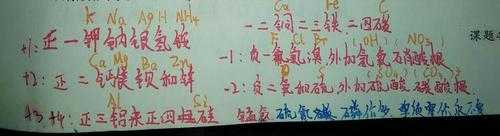 K Na Ag H NH₄
+1: 正一钾钠银氢铵
Ca Mg Ba Zn
+2: 正二钙镁钡和锌
Al Si
+3.+4: 正三铝来正四归硅
Cu Fe C
一二铜二三铁二四碳
F Cl Br (OH) (NO₃)
-1: 负一氟氯溴,外加氢氧与硝酸根
O S (SO₄) (CO₃)
-2: 负二氧和硫,外加硫酸碳酸根
单质零价永不变
课题